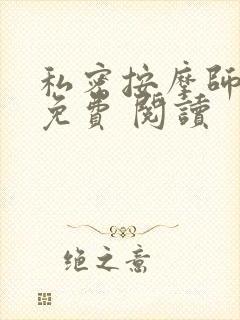 私密按摩師
免費 閱讀
绝之意